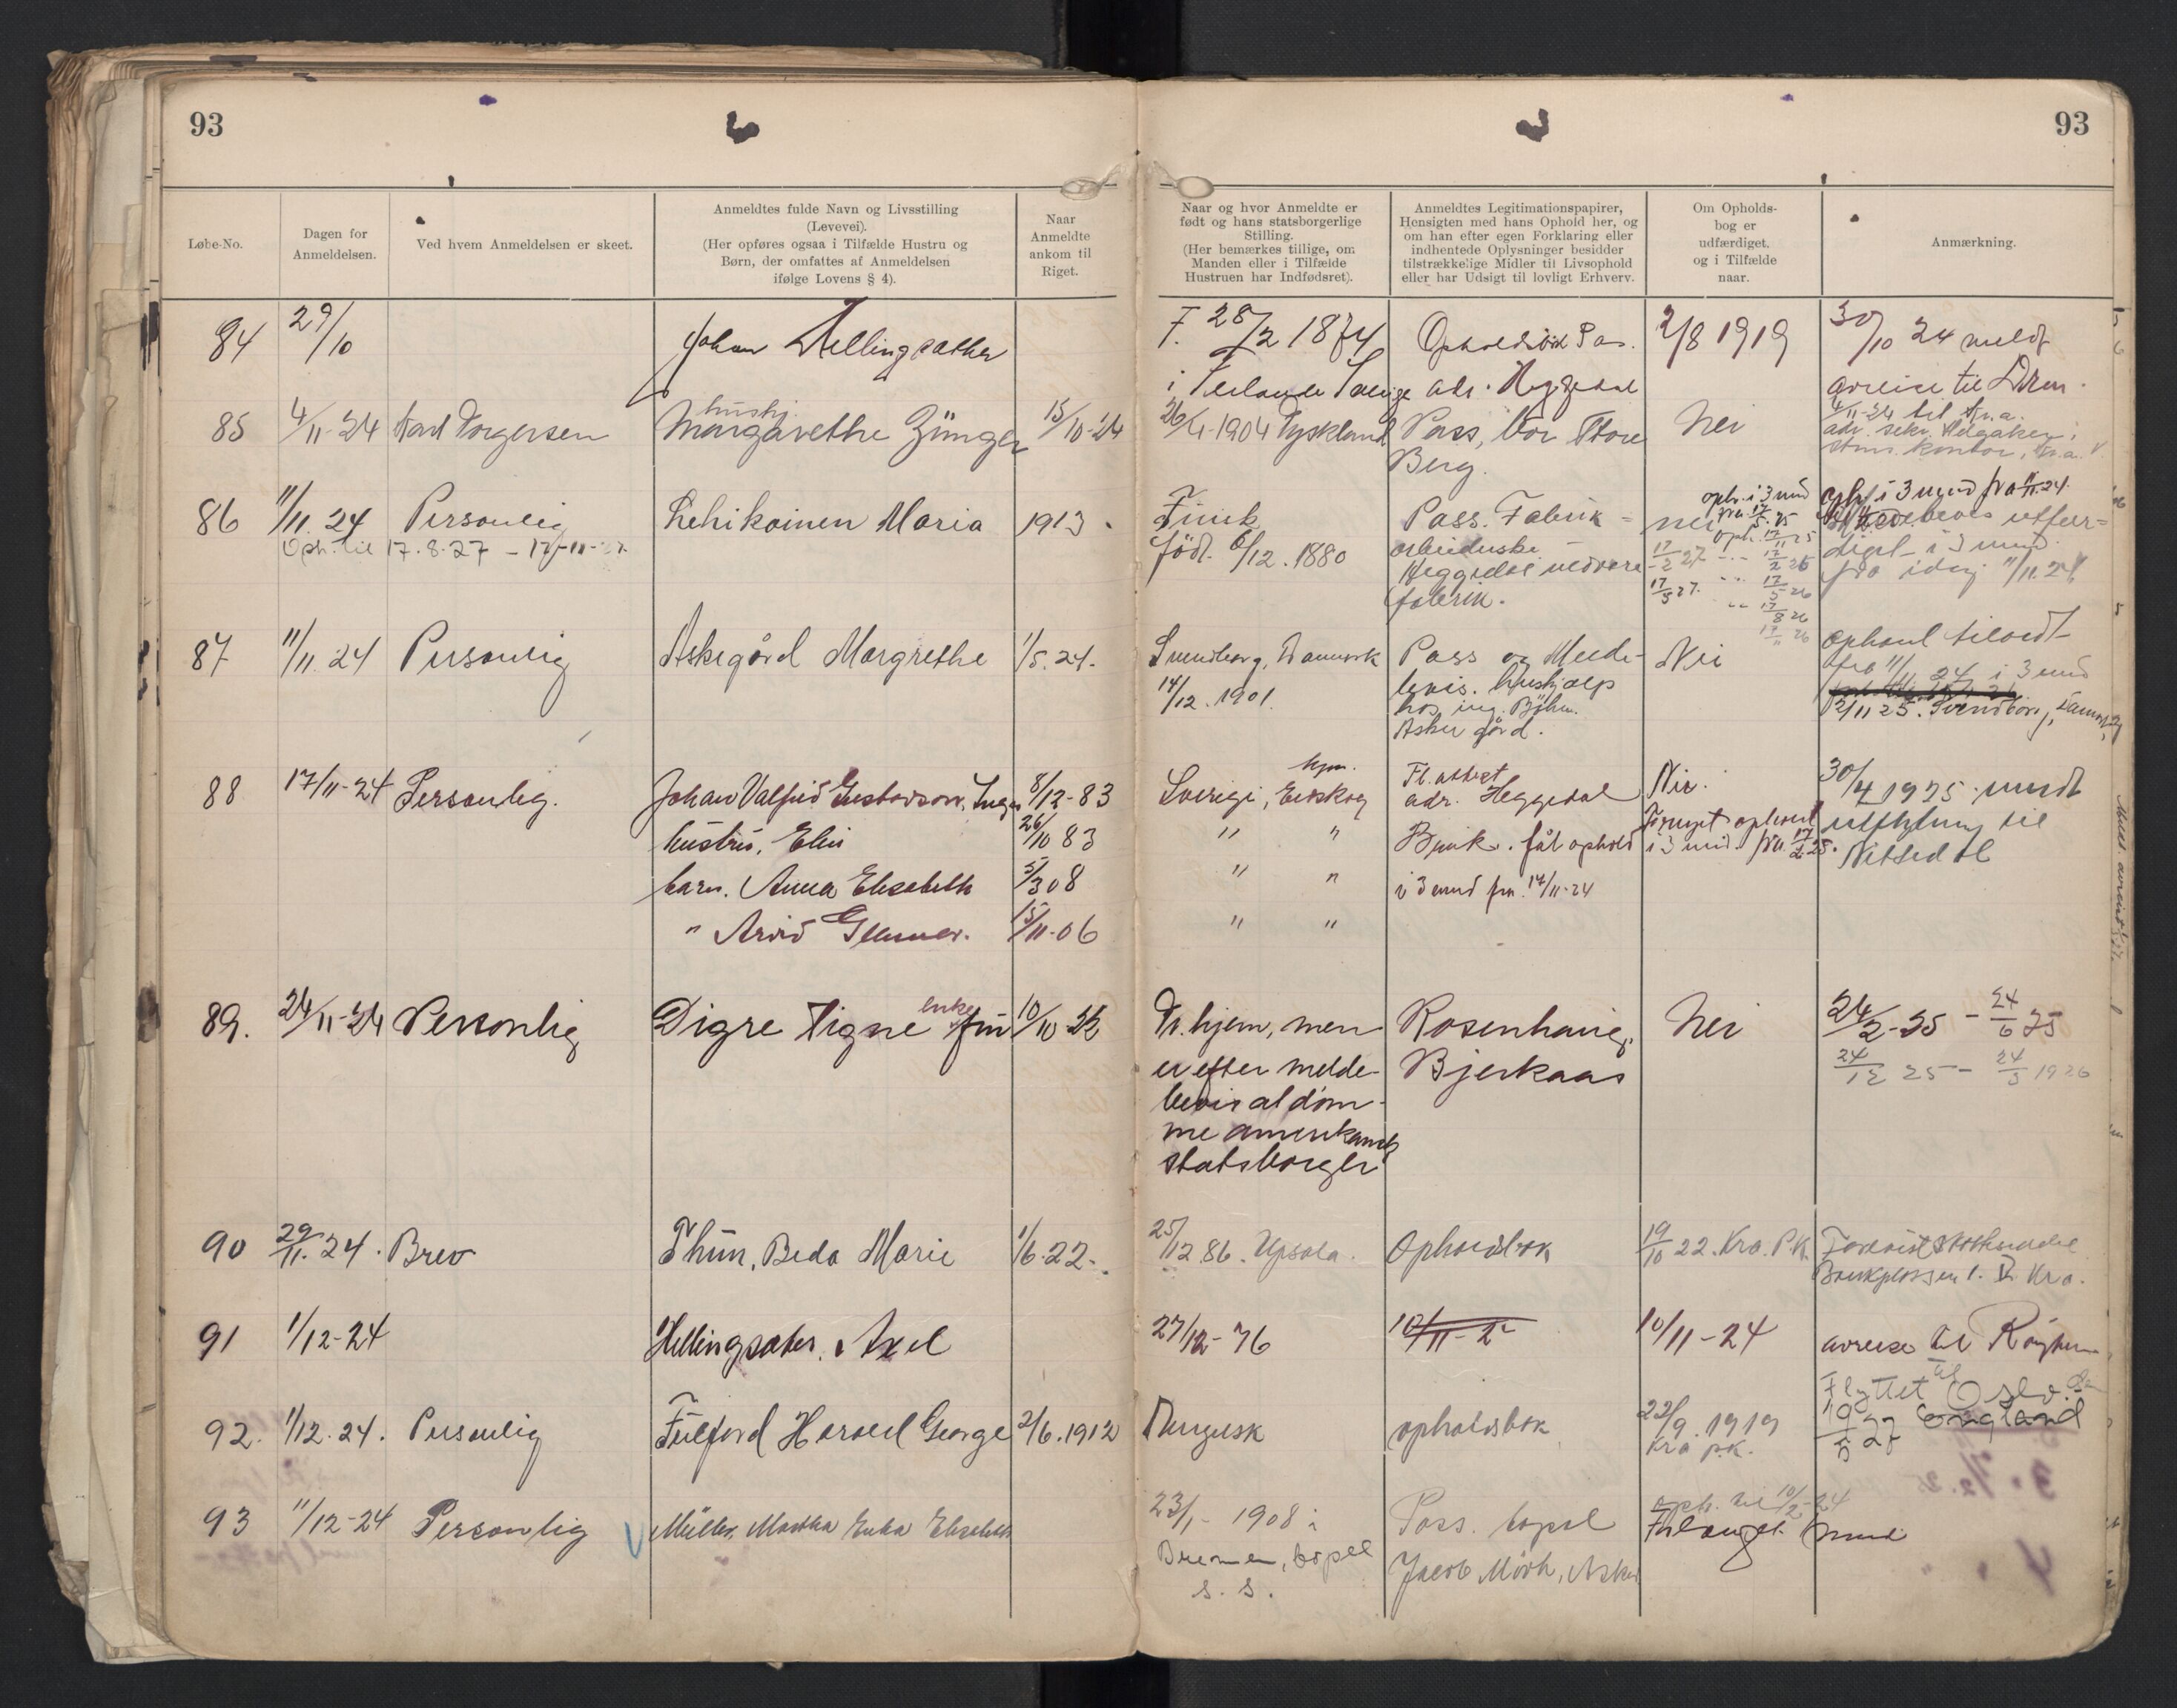 93
93
Løbe-No.
Dagen for
Anmeldelsen.
Ved hvem Anmeldelsen er skeet.
Anmeldtes fulde Navn og Livsstilling
(Levevei).
(Her opføres ogsaa i Tilfælde Hustru og
Børn, der omfattes af Anmeldelsen
ifølge Lovens § 4).
Naar
Anmeldte
ankom til
Riget.
Naar og hvor Anmeldte er
født og hans statsborgerlige
Stilling.
(Her bemærkes tillige, om
Manden eller i Tilfælde
Hustruen har Indfødsret).
Anmeldtes Legitimationspapirer,
Hensigten med hans Ophold her, og
om han efter egen Forklaring eller
indhentede Oplysninger besidder
tilstrækkelige Midler til Livsophold
eller har Udsigt til lovligt Erhverv.
Om Opholds-
bog er
udfærdiget.
og i Tilfælde
naar.
Anmærkning.
84 29/10 Johan Hellingsæther F. 28/2 1874 2/8 1919 30/10 24 meldt
i Sverige adr. Heggedal avreise til Drm.
85 4/11-24 Torgersen hushj. Margarethe Zünger 15/10-24 26/4-1904 Tyskland Pass, bor Thore Nei 4/11-24
Berg.
86 11/11.24 Personlig Lehikoinen Maria 1913. Finsk Pass. Fabrik- nei oph. i 3 mnd fra 11/11.24.
Oph. til 17.8.27 - 17-11-27. født 6/12.1880 arbeiderske Meldebevis utfær-
Heggedal diget i 3 mnd.
fabrik. fra idag 11/11.24
87 11/11.24 Personlig Askegård Margrethe 1/5.24. Svendborg, Danmark Pass og Melde- Nei ophold
14/12.1901. bevis. Hushjælp fra 11/11 24 i 3 mnd
hos ing. Bøhm. 12/11 25. Svendborg,
Asker gård.
88 17/11-24 Personlig. Johan Valfrid Gustavson, 8/12-83 Sverige, Fl. attest Nei. 30/4 1925 meldt
adr. Heggedal
hustru, Elin 26/10 83 " " Bruk. fåt ophold utflytning til
i 3 mnd. fra 17/2-25. Nitedal
barn. Anna Elisabeth 5/3 08 " " i 3 mnd fra 17/11-24
" Arvid Gunnar. 15/11-06 " "
89. 24/11-24 Personlig Digre Signe enke fru 10/10 22 hjem, men Rosenhaug, Nei 24/2-25 - 24/6 25
er efter melde- Bjerkaas 24/12 25 - 24/3 1926
bevis aldøm-
me amerikansk
statsborger
90 29/11.24. Brev Thun, Beda Marie 1/6.22. 25/12 86. Upsala. Opholdsbok 19/10 22. Kra. P.K.
Kra.
91 1/12-24 Hellingsæter, Axel 27/12-76 10/11-24 avreise til Røyken
92. 1/12.24. Personlig Fulford Harold George 2/6.1912 Engelsk opholdsbok 22/9.1919 Flyttet til Oslo
Kra p.k. 19/5 27 England
93 11/12-24 Personlig Müller, Martha Erika Elisabeth 23/1-1908 i Pass. bopæl oph. til 10/2-24
Bremen, bopæl Jacob Mørk, Asker Forlænget
s. s.